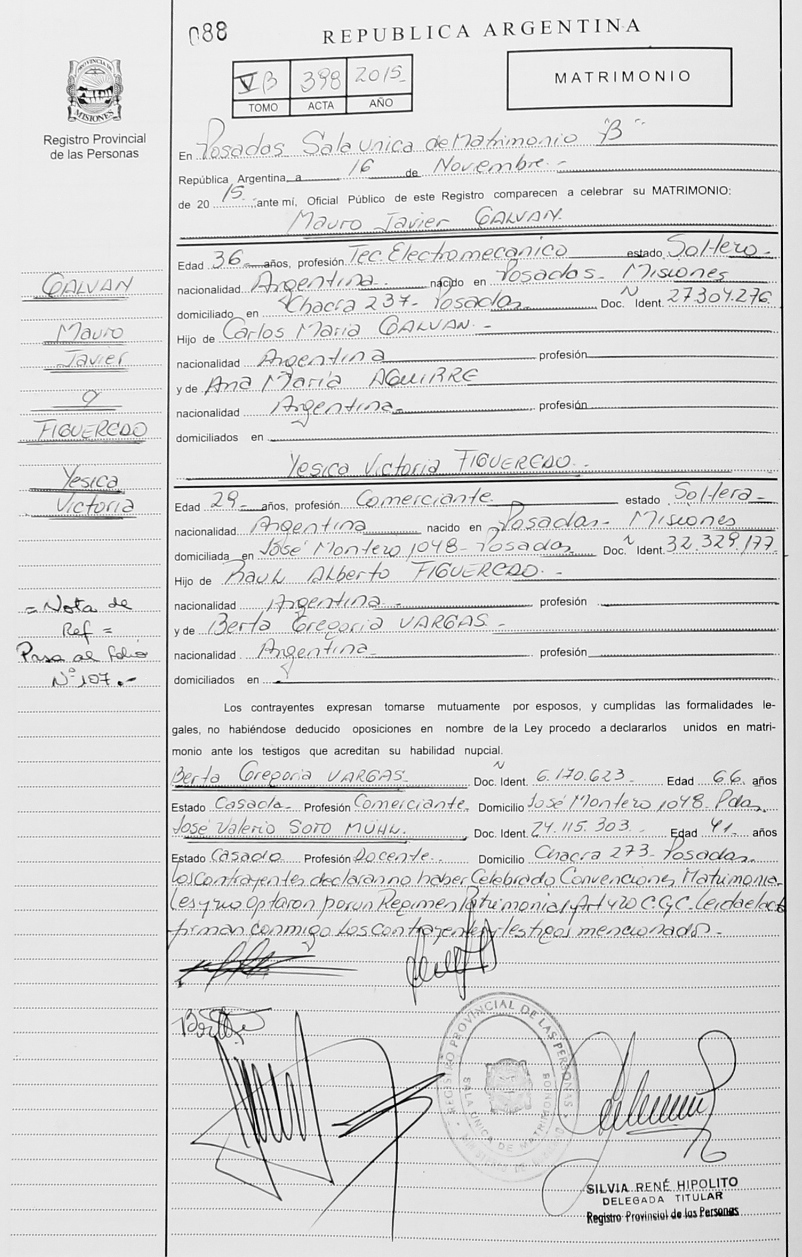 088
REPUBLICA ARGENTINA
PROVINCIA DE MISIONES
Registro Provincial
de las Personas
V B 398 2015
TOMO ACTA AÑO
MATRIMONIO
En Posadas Sala Unica de Matrimonio "B"
República Argentina, a 16 de Novembre.-
de 20 15 ante mí, Oficial Público de este Registro comparecen a celebrar su MATRIMONIO:
Mauro Javier GALVAN.
Edad 36 años, profesión Tec. Electromecanico estado Soltero-
nacionalidad Argentina nacido en Posadas- Misiones
domiciliado en Chacra 237- Posadas Doc. N Ident. 27.304.276
Hijo de Carlos Maria GALVAN-
nacionalidad Argentina profesión
y de Ana Maria AGUIRRE
nacionalidad Argentina profesión
domiciliados en
Yesica Victoria FIGUEREDO.-
Edad 29 años, profesión Comerciante estado Soltera-
nacionalidad Argentina nacido en Posadas- Misiones
domiciliada en José Montero 1048- Posadas Doc. N Ident. 32.329.177
Hijo de Raul Alberto FIGUEREDO.-
nacionalidad Argentina profesión
y de Berta Gregoria VARGAS-
nacionalidad Argentina profesión
domiciliados en
GALVAN
Mauro
Javier
y
FIGUEREDO
Yesica
Victoria
= Nota de
Ref =
Pasa al folio
N° 107.-
Los contrayentes expresan tomarse mutuamente por esposos, y cumplidas las formalidades le-
gales, no habiéndose deducido oposiciones en nombre de la Ley procedo a declararlos unidos en matri-
monio ante los testigos que acreditan su habilidad nupcial.
Berta Gregoria VARGAS- Doc. N Ident. 6.170.623- Edad 66 años
Estado Casada Profesión Comerciante. Domicilio José Montero 1048- Pdas.
José Valerio SOTO MÜHL. Doc. Ident. 24.115.303 Edad 41 años
Estado Casado Profesión Docente. Domicilio Chacra 273- Posadas
Los Contrayentes declaran no haber Celebrado Convenciones Matrimonia-
les y no Optaron por un Regimen Patrimonial Art 420 C.G.C. Leida el acta
firman conmigo los contrayentes y testigos mencionados-
REGISTRO PROVINCIAL DE LAS PERSONAS
SALA UNICA DE MATRIMONIO
SILVIA RENÉ HIPOLITO
DELEGADA TITULAR
Registro Provincial de las Personas